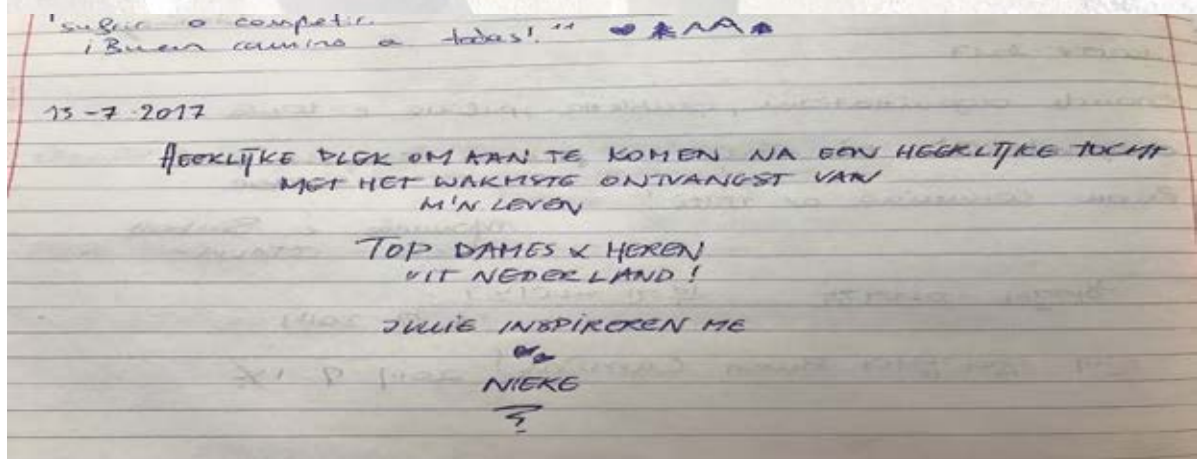 sufrir o competir.
¡Buen camino a todas!"
13-7-2017
HEERLIJKE PLEK OM AAN TE KOMEN NA EEN HEERLIJKE TOCHT
MET HET WARMSTE ONTVANGST VAN
M'N LEVEN
TOP DAMES & HEREN
UIT NEDERLAND!
JULLIE INSPIREREN ME
NIEKE